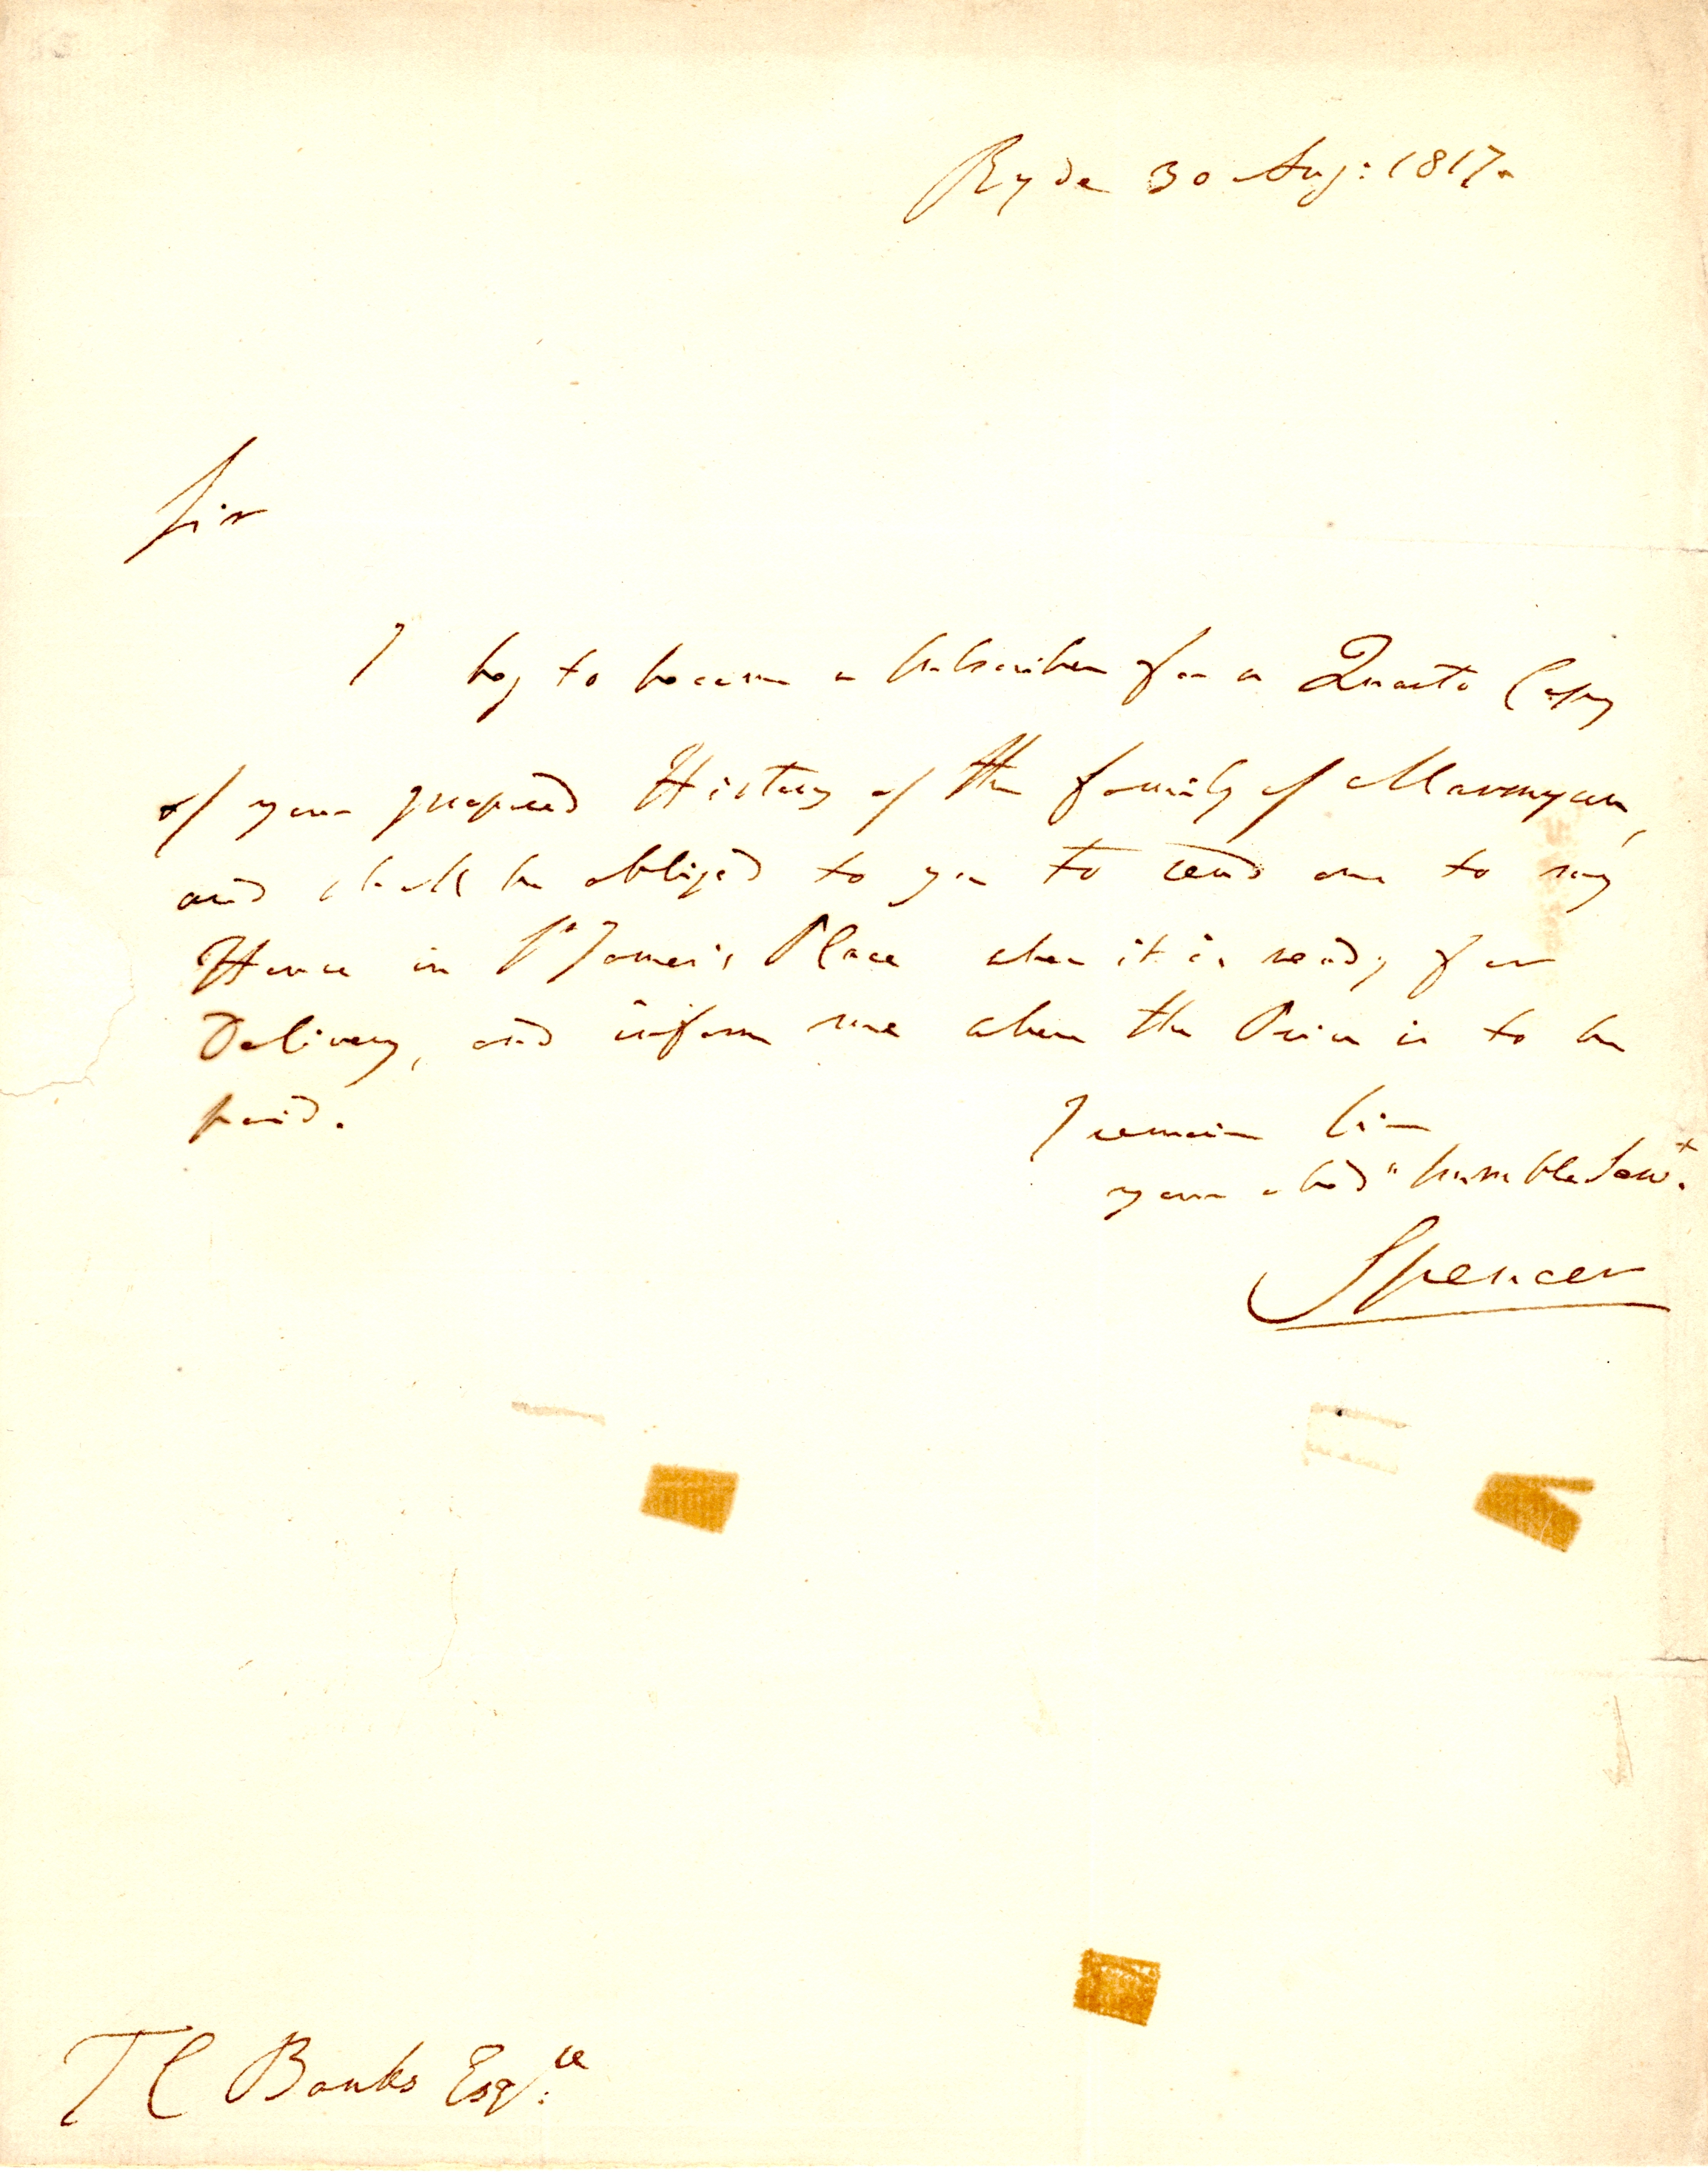 Ryde 30 Aug: 1817.
Sir
I beg to become a Subscriber for a Quarto Copy
of your proposed History of the family of Marmyun,
and shall be obliged to you to send one to my
House in St James's Place when it is ready for
Delivery, and inform me where the Price is to be
paid.
I remain Sir
your obedt humble Servt.
Spencer
T C Banks Esqre: